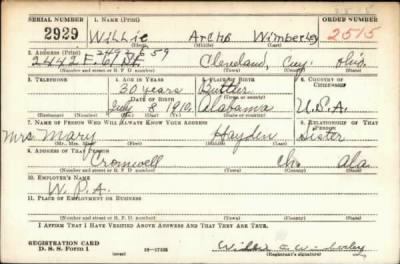 SERIAL NUMBER 1. NAME (Print) ORDER NUMBER
2929 Willie Archo Wimberley 2515
(First) (Middle) (Last)
2. ADDRESS (Print)
2492 E 59
2442 E. 61 St. Cleveland, Cuy. Ohio
(Number and street or R. F. D. number) (Town) (County) (State)
3. TELEPHONE 4. AGE IN YEARS 5. PLACE OF BIRTH 6. COUNTRY OF CITIZENSHIP
30 years Butler
DATE OF BIRTH
July 8 1910 Alabama U.S.A.
(Exchange) (Number) (Mo.) (Day) (Yr.) (State or country)
7. NAME OF PERSON WHO WILL ALWAYS KNOW YOUR ADDRESS 8. RELATIONSHIP OF THAT PERSON
Mrs. Mary Hayden Sister
(Mr., Mrs., Miss) (First) (Middle) (Last)
9. ADDRESS OF THAT PERSON
Cromwell Cho. Ala
(Number and street or R. F. D. number) (Town) (County) (State)
10. EMPLOYER'S NAME
W. P. A.
11. PLACE OF EMPLOYMENT OR BUSINESS
(Number and street or R. F. D. number) (Town) (County) (State)
I AFFIRM THAT I HAVE VERIFIED ABOVE ANSWERS AND THAT THEY ARE TRUE.
REGISTRATION CARD
D. S. S. Form 1 (over) 16—17105 Willie E Wimberley
(Registrant's signature)